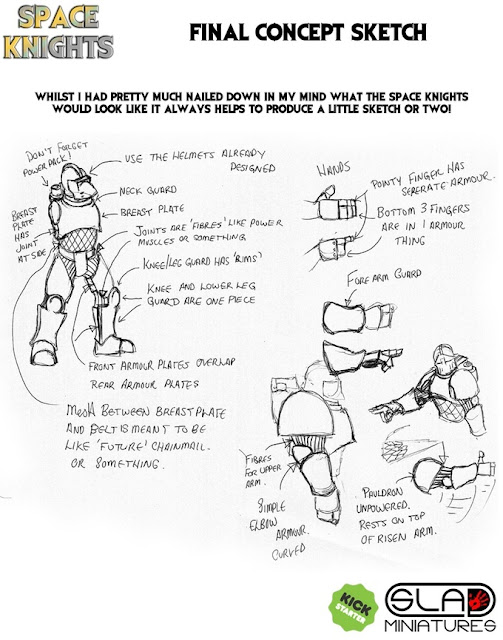 SPACE
KNIGHTS
FINAL CONCEPT SKETCH
WHILST I HAD PRETTY MUCH NAILED DOWN IN MY MIND WHAT THE SPACE KNIGHTS
WOULD LOOK LIKE IT ALWAYS HELPS TO PRODUCE A LITTLE SKETCH OR TWO!
DON'T FORGET
POWER PACK!
USE THE HELMETS ALREADY
DESIGNED
NECK GUARD
BREAST PLATE
BREAST
PLATE
HAS
JOINT
AT SIDE
JOINTS ARE 'FIBRES' LIKE POWER
MUSCLES OR SOMETHING
KNEE/LEG GUARD HAS 'RIMS'
KNEE AND LOWER LEG
GUARD ARE ONE PIECE
FRONT ARMOUR PLATES OVERLAP
REAR ARMOUR PLATES
MESH BETWEEN BREASTPLATE
AND BELT IS MEANT TO BE
LIKE 'FUTURE' CHAINMAIL.
OR SOMETHING.
HANDS
POINTY FINGER HAS
SEPERATE ARMOUR.
BOTTOM 3 FINGERS
ARE IN 1 ARMOUR
THING
FOREARM GUARD
FIBRES
FOR UPPER
ARM.
SIMPLE
ELBOW
ARMOUR.
CURVED
PAULDRON
UNPOWERED.
RESTS ON TOP
OF RISEN ARM.
KICK
STARTER
SLAD
MINIATURES